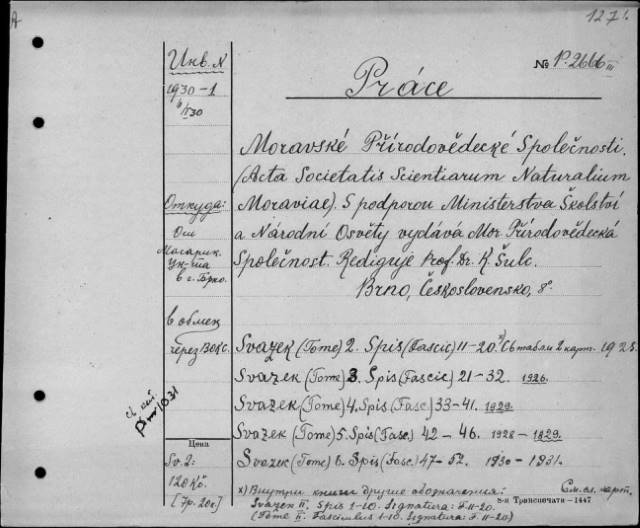 A
127 1.
Инв. N
№ P. 2666 III
Práce
1930-1
Moravské Přírodovědecké Společnosti.
(Acta Societatis Scientiarum Naturalium
Moraviae). S podporou Ministerstva Školství
Откуда:
a Národní Osvěty vydává Mor Přírodovědecká
От
Масарик.
Společnost. Rediguje Prof. Dr. K Šulc.
в г. Брно.
Brno, Československo, 8°.
в обмен
через ВОКС.
Svazek (Tome) 2. Spis (Fascic) 11-20 x) съ табл и 2 карт. 1925.
Svazek (Tome) 3. Spis (Fascic) 21-32. 1926.
Svazek (Tome) 4. Spis (Fasc) 33-41. 1929.
Svazek (Tome) 5. Spis (Fasc.) 42-46. 1928-1829.
Цена
Sv. 2:
Svazek (Tome) 6. Spis (Fasc.) 47-52. 1930-1931.
120 Kč.
[7р. 20к]
x) Внутри книги другие обозначения: См. сл. карт.
Svazek II. Spis 1-10. Signatura: F. 11-20.
8-я Транспечати-1447
(Tome II. Fasciculus 1-10. Signatura: F. 11-20)